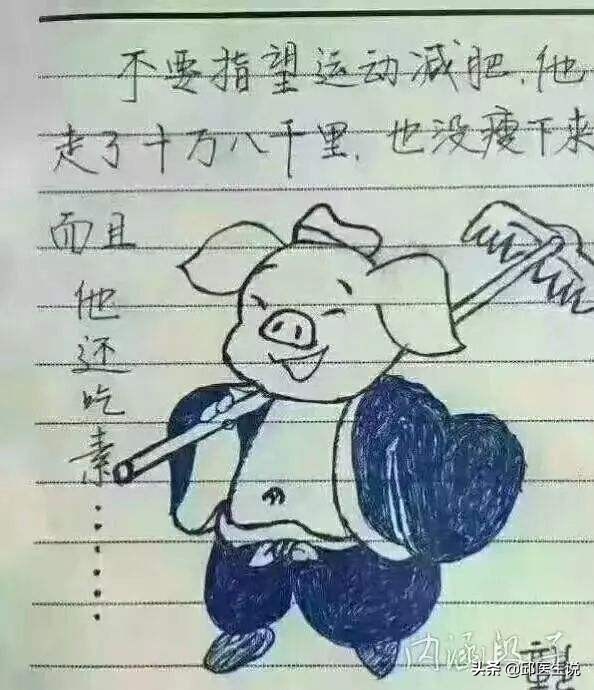 不要指望运动减肥,他
走了十万八千里,也没瘦下来
而且
他
还
吃
素......
内涵段子
头条 @邱医生说